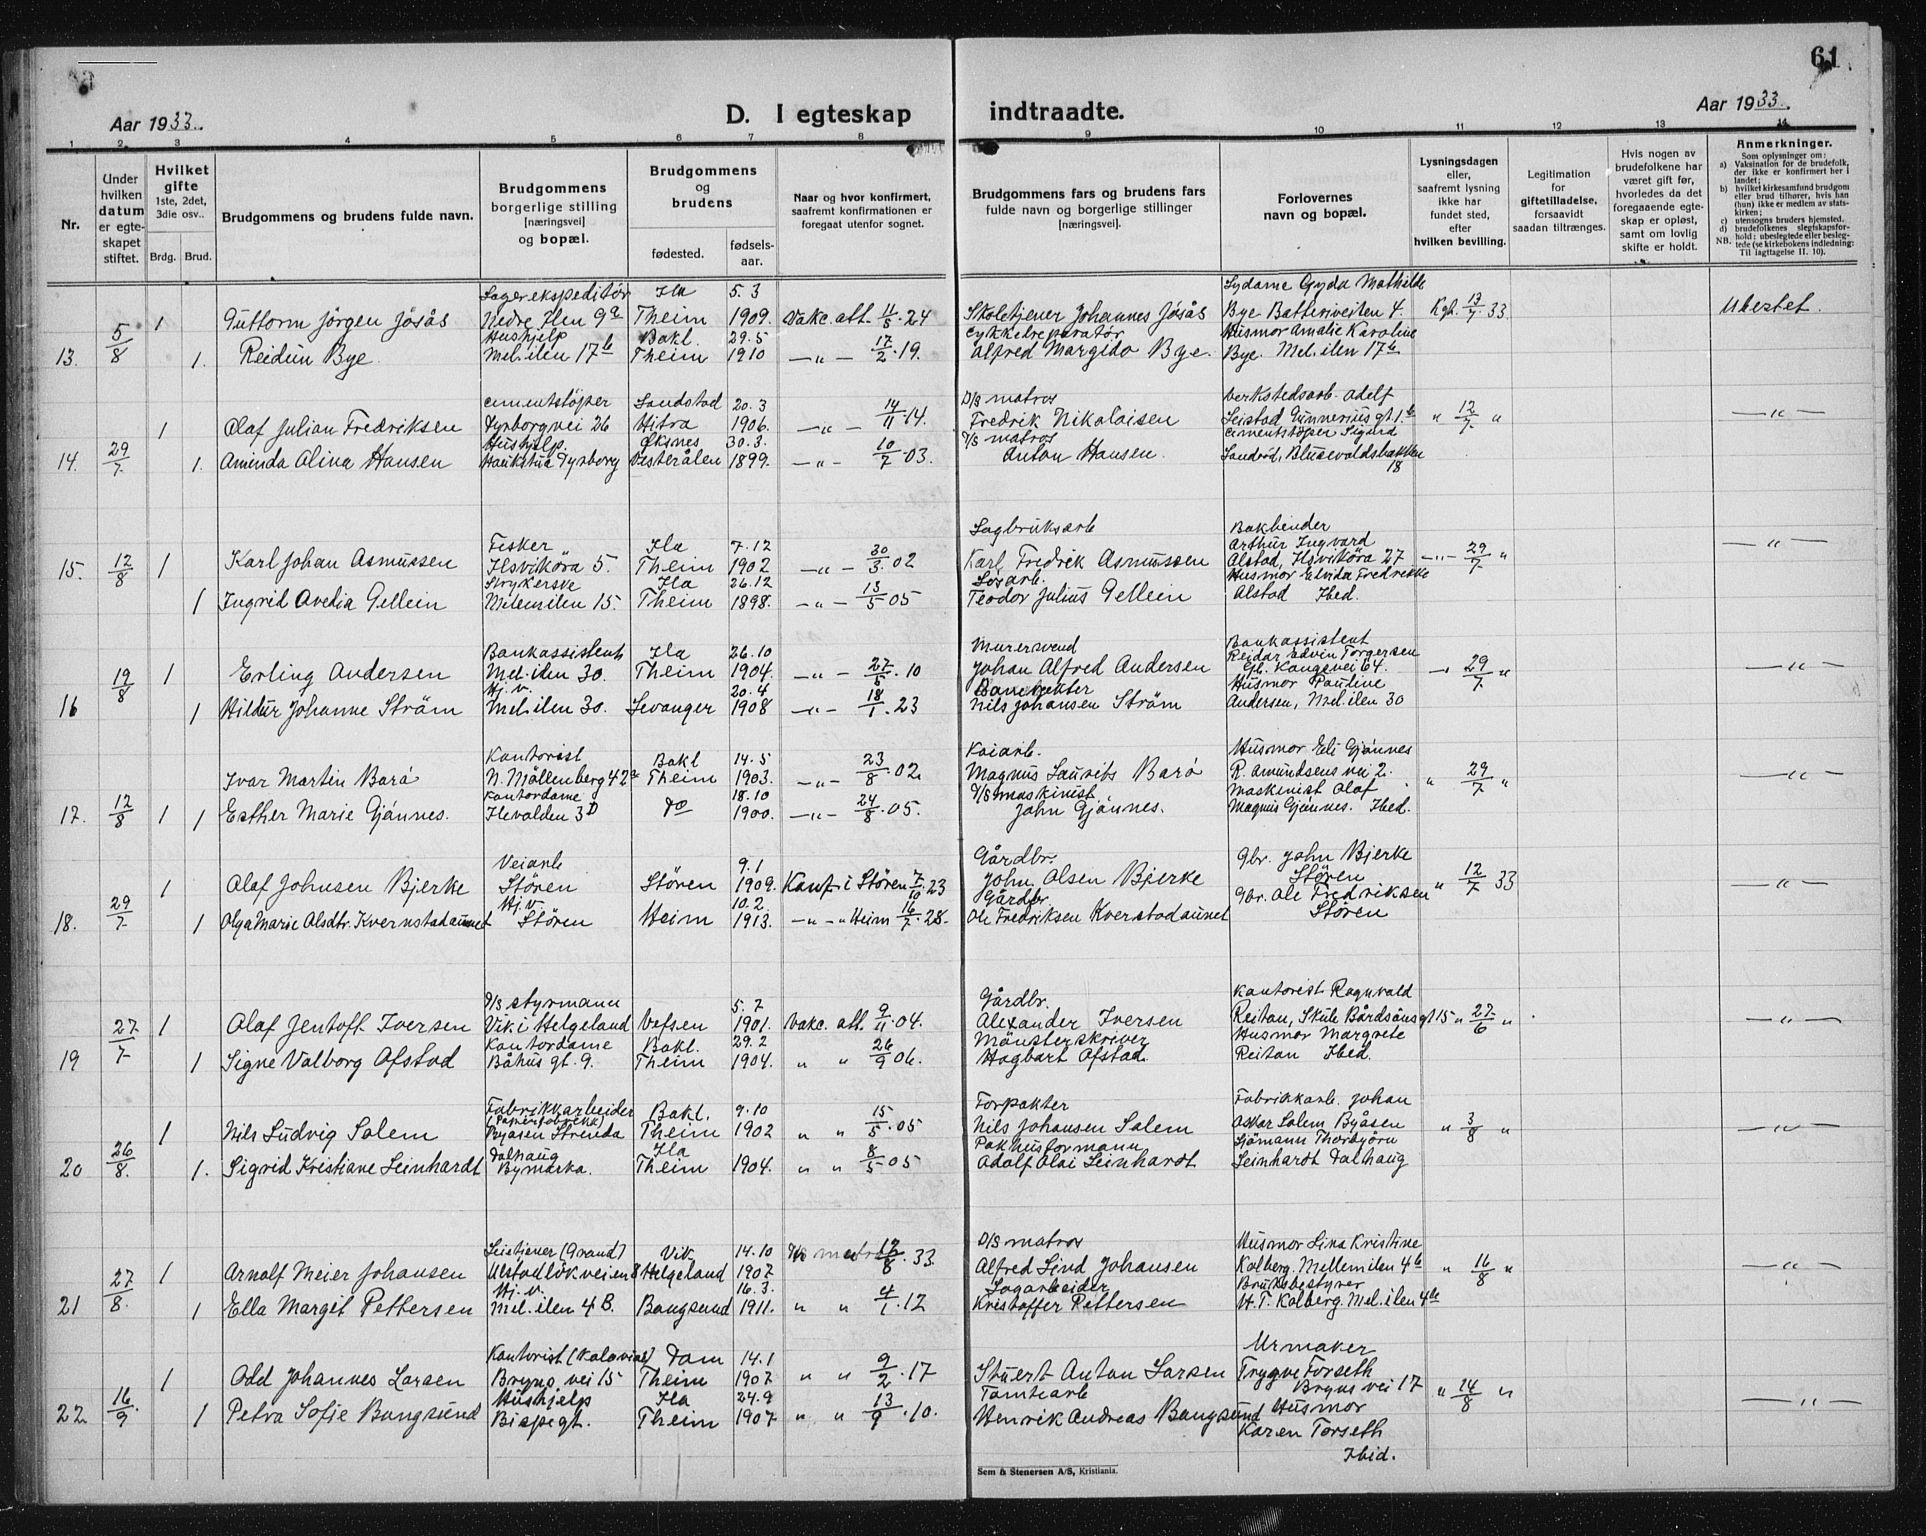 61
Aar 1933.
D. I egteskap indtraadte.
Aar 1933.
1 2 3 4 5 6 7 8 9 10 11 12 13 14
Nr.
Under hvilken datum er egteskapet stiftet.
Hvilket gifte 1ste, 2det, 3die osv..
Brdg. Brud.
Brudgommens og brudens fulde navn.
Brudgommens borgerlige stilling [næringsvei] og bopæl.
Brudgommens og brudens
fødested. fødselsaar.
Naar og hvor konfirmert, saafremt konfirmationen er foregaat utenfor sognet.
Brudgommens fars og brudens fars fulde navn og borgerlige stillinger [næringsvei].
Forlovernes navn og bopæl.
Lysningsdagen eller, saafremt lysning ikke har fundet sted, efter hvilken bevilling.
Legitimation for giftetilladelse, forsaavidt saadan tiltrænges.
Hvis nogen av brudefolkene har været gift før, hvorledes da det foregaaende egteskap er opløst, samt om lovlig skifte er holdt.
Anmerkninger.
Som oplysninger om:
a) Vaksination for de brudefolk, der ikke er konfirmert her i landet;
b) hvilket kirkesamfund brudgom eller brud tilhører, hvis han (hun) ikke er medlem av statskirken;
c) utensogns bruders hjemsted.
d) brudefolkenes slegtskapsforhold: ubeslegtede eller beslegtede (se kirkebokens indledning:
NB. Til Iagttagelse II. 10).
13. 5/8 1 Guttorm Jörgen Jösås Lagerekspeditör Nedre Ilen 9a Ila Theim 5.3 1909. Vakc. att. 11/5.24 Skoletjener Johannes Jösås Sydame Gyda Mathilde Bye Batteriveiten 4. Kgh. 13/7 33 Ubeslet.
1. Reidun Bye Hushjelp Mel.ilen 17b Bakl. Theim 29.5 1910 —"— 17/2.19. Cykkelreparatør Alfred Margido Bye. Husmor Amalie Karoline Bye. Mel.ilen 17b
14. 29/7 1 Olaf Julian Fredriksen Cementstöper Tyrborgvei 26 Sandstad Hitra 20.3 1906. —"— 14/11.14. D/S matros Fredrik Nikolaisen Verkstedsarb. Adolf Leistad Gunnerius gt. 1b " 12/7 " —"—
1. Aminda Alina Hansen Hushjelp Haukstua Tyrborg Öksnes Vesterålen 30.3. 1899. —"— 10/7.03. D/S matros Anton Hansen. Cementstöper Sigurd Sandrød, Blusevoldsbakken 18
15. 12/8 1 Karl Johan Asmussen Fisker Ilsviköra 5. Ila Theim 7.12 1902 —"— 30/3.02 Sagbruksarb Karl Fredrik Asmussen Bokbinder Arthur Ingvard Alstad, Ilsviköra 27 —"— 29/7 " —"—
1 Ingrid Avedia Gellein Strykerske Mellemilen 15. Ila Theim 26.12 1898. —"— 13/5 05 Teodor Julius Gellein Husmor Elvida Fredrikke Alstad Ibid.
16 19/8 1 Erling Andersen Bankassistent Mel.ilen 30. Ila Theim 26.10 1904. —"— 27/5.10 Murersvend Johan Alfred Andersen Bankassistent Reidar Edvin Torgersen Gl. Kongevei 64. " 29/7 " —"—
1 Hildur Johanne Ström Hj.v. Mel.ilen 30. Levanger 20.4 1908 —"— 18/1.23 Banevokter Nils Johansen Ström Husmor Pauline Andersen, Mel.ilen 30
17. 12/8 1 Ivar Martin Barø Kontorist N. Möllenberg 42a Bakl Theim 14.5 1903. —"— 23/8.02. Kaiarb. Magnus Laurits Barö Husmor Eli Gjönnes R. Amundsens vei 2. " 29/7 " —"—
1 Esther Marie Gjönnes. Kontordame Ilevolden 3D do 18.10 1900. —"— 24/8.05. D/S maskinist John Gjönnes. Maskinist Olaf Magnus Gjönnes. Ibid.
18. 29/7 1 Olaf Johnsen Bjerke Veiarb Stören Stören 9.1 1909. Konf. i Stören 7/10 23 Gårdbr. John Olsen Bjerke Gbr. John Bjerke Stören " 12/7 33 —"—
1 Olga Marie Olsdtr. Kvernstadaunet Hj.v. Stören Heim 10.2. 1913. —"— " Heim 16/7.28. Gårdbr. Ole Fredriksen Kverstadaunet Gbr. Ole Fredriksen Stören
19 27/7 1 Olaf Jentoft Iversen D/S styrmann Vik i Helgeland Vefsen 5.7 1901. Vakc. att. 9/11.04. Gårdbr. Alexander Iversen Kontorist Ragnvald Reitan, Skule Bårdsönsgt 15 " 27/6 " —"—
1 Signe Valborg Ofstad Kontordame Båhus gt. 9. Bakl. Theim 29.2 1904. " " 26/9 06. Mönsterskriver Hagbart Ofstad. Husmor Margrete Reitan Ibid.
20 26/8. 1 Nils Ludvig Solem Fabrikkarbeider (Papirfabrikk) Byåsen Strinda Bakl. Theim 9.10 1902 " " 15/5.05 Forpakter Nils Johansen Solem Fabrikkarb. Johan Oskar Solem Byåsen " 3/8 " —"—
1. Sigrid Kristiane Leinhardt Dalhaug Bymarka. Ila Theim 1904. " " 8/5 05 Pakhusformann Adolf Olai Leinhardt Sjömann Thorbjörn Leinhardt Dalhaug
21 27/8. 1 Arnolf Meier Johansen (Grand) Ulstadlökveien 8 Vik Helgeland 14.10 1907 12/8.33 D/S matros Alfred Lind Johansen Husmor Lina Kristine Kolberg. Mellemilen 4b " 16/8 " —"—
1 Ella Margit Pettersen Hj.v. Mel.ilen 4B. Bangsund 16.3. 1911. " " 4/1.12 Sagarbeider Kristoffer Pettersen Bruksbestyrer H.T. Kolberg. Mel.ilen 4b
22 16/9. 1 Odd Johannes Larsen Kontorist (Kolonial) Bryns vei 15 Dom Theim 14.1 1907 " " 9/2.17 Stuert Anton Larsen Urmaker Trygve Forseth Bryns vei 17 " 14/8 " —"—
1 Petra Sofie Bangsund Hushjelp Bispegt. Ila Theim 24.9 1907. " " 13/9.10. Tomtearb Henrik Andreas Bangsund Husmor Karen Forseth Ibid.
Sem & Stenersen A/S, Kristiania.